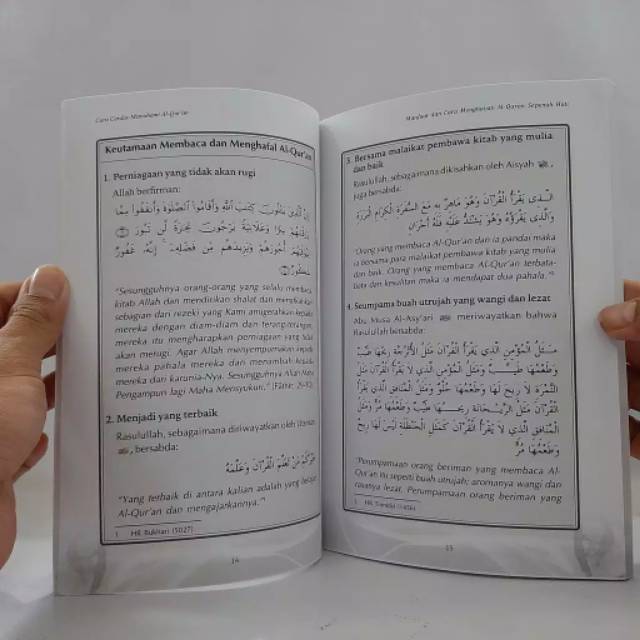 Cara Cerdas Memahami Al-Qur'an
Keutamaan Membaca dan Menghafal Al-Qur'an
1. Perniagaan yang tidak akan rugi
Allah berfirman:
إِنَّ الَّذِينَ يَتْلُونَ كِتَابَ اللَّهِ وَأَقَامُوا الصَّلَاةَ وَأَنفَقُوا مِمَّا
رَزَقْنَاهُمْ سِرًّا وَعَلَانِيَةً يَرْجُونَ تِجَارَةً لَّن تَبُورَ ٢٩
لِيُوَفِّيَهُمْ أُجُورَهُمْ وَيَزِيدَهُم مِّن فَضْلِهِ إِنَّهُ غَفُورٌ
شَكُورٌ ٣٠
"Sesungguhnya orang-orang yang selalu membaca
kitab Allah dan mendirikan shalat dan menafkahkan
sebagian dari rezeki yang Kami anugerahkan kepada
mereka dengan diam-diam dan terang-terangan,
mereka itu mengharapkan perniagaan yang tidak
akan merugi. Agar Allah menyempurnakan kepada
mereka pahala mereka dan menambah kepada
mereka dari karunia-Nya. Sesungguhnya Allah Maha
Pengampun lagi Maha Mensyukuri." (Fâthir: 29-30).
2. Menjadi yang terbaik
Rasulullah, sebagaimana diriwayatkan oleh Utsman
ﷺ, bersabda:
خَيْرُكُمْ مَنْ تَعَلَّمَ الْقُرْآنَ وَعَلَّمَهُ
"Yang terbaik di antara kalian adalah yang belajar
Al-Qur'an dan mengajarkannya."¹
1 HR. Bukhari (5027)
14
Manfaat dan Cara Menghayati Al-Quran Sepenuh Hati
3. Bersama malaikat pembawa kitab yang mulia
dan baik
Rasulullah, sebagaimana dikisahkan oleh Aisyah
juga bersabda:
الَّذِي يَقْرَأُ الْقُرْآنَ وَهُوَ مَاهِرٌ بِهِ مَعَ السَّفَرَةِ الْكِرَامِ الْبَرَرَةِ
وَالَّذِي يَقْرَؤُهُ وَهُوَ يَشْتَدُّ عَلَيْهِ فَلَهُ أَجْرَانِ
"Orang yang membaca Al-Qur'an dan ia pandai maka
ia bersama para malaikat pembawa kitab yang mulia
dan baik. Orang yang membaca Al-Qur'an terbata-
bata dan kesulitan maka ia mendapat dua pahala."
4. Seumpama buah utrujah yang wangi dan lezat
Abu Musa Al-Asy'ari meriwayatkan bahwa
Rasulullah bersabda:
مَثَلُ الْمُؤْمِنِ الَّذِي يَقْرَأُ الْقُرْآنَ مَثَلُ الْأُتْرُجَّةِ رِيحُهَا طَيِّبٌ
وَطَعْمُهَا طَيِّبٌ وَمَثَلُ الْمُؤْمِنِ الَّذِي لَا يَقْرَأُ الْقُرْآنَ مَثَلُ
التَّمْرَةِ لَا رِيحَ لَهَا وَطَعْمُهَا حُلْوٌ وَمَثَلُ الْمُنَافِقِ الَّذِي يَقْرَأُ
الْقُرْآنَ مَثَلُ الرَّيْحَانَةِ رِيحُهَا طَيِّبٌ وَطَعْمُهَا مُرٌّ وَمَثَلُ
الْمُنَافِقِ الَّذِي لَا يَقْرَأُ الْقُرْآنَ كَمَثَلِ الْحَنْظَلَةِ لَيْسَ لَهَا رِيحٌ
وَطَعْمُهَا مُرٌّ
"Perumpamaan orang beriman yang membaca Al-
Qur'an itu seperti buah utrujah; aromanya wangi dan
rasanya lezat. Perumpamaan orang beriman yang
HR. Tirmidzi
15